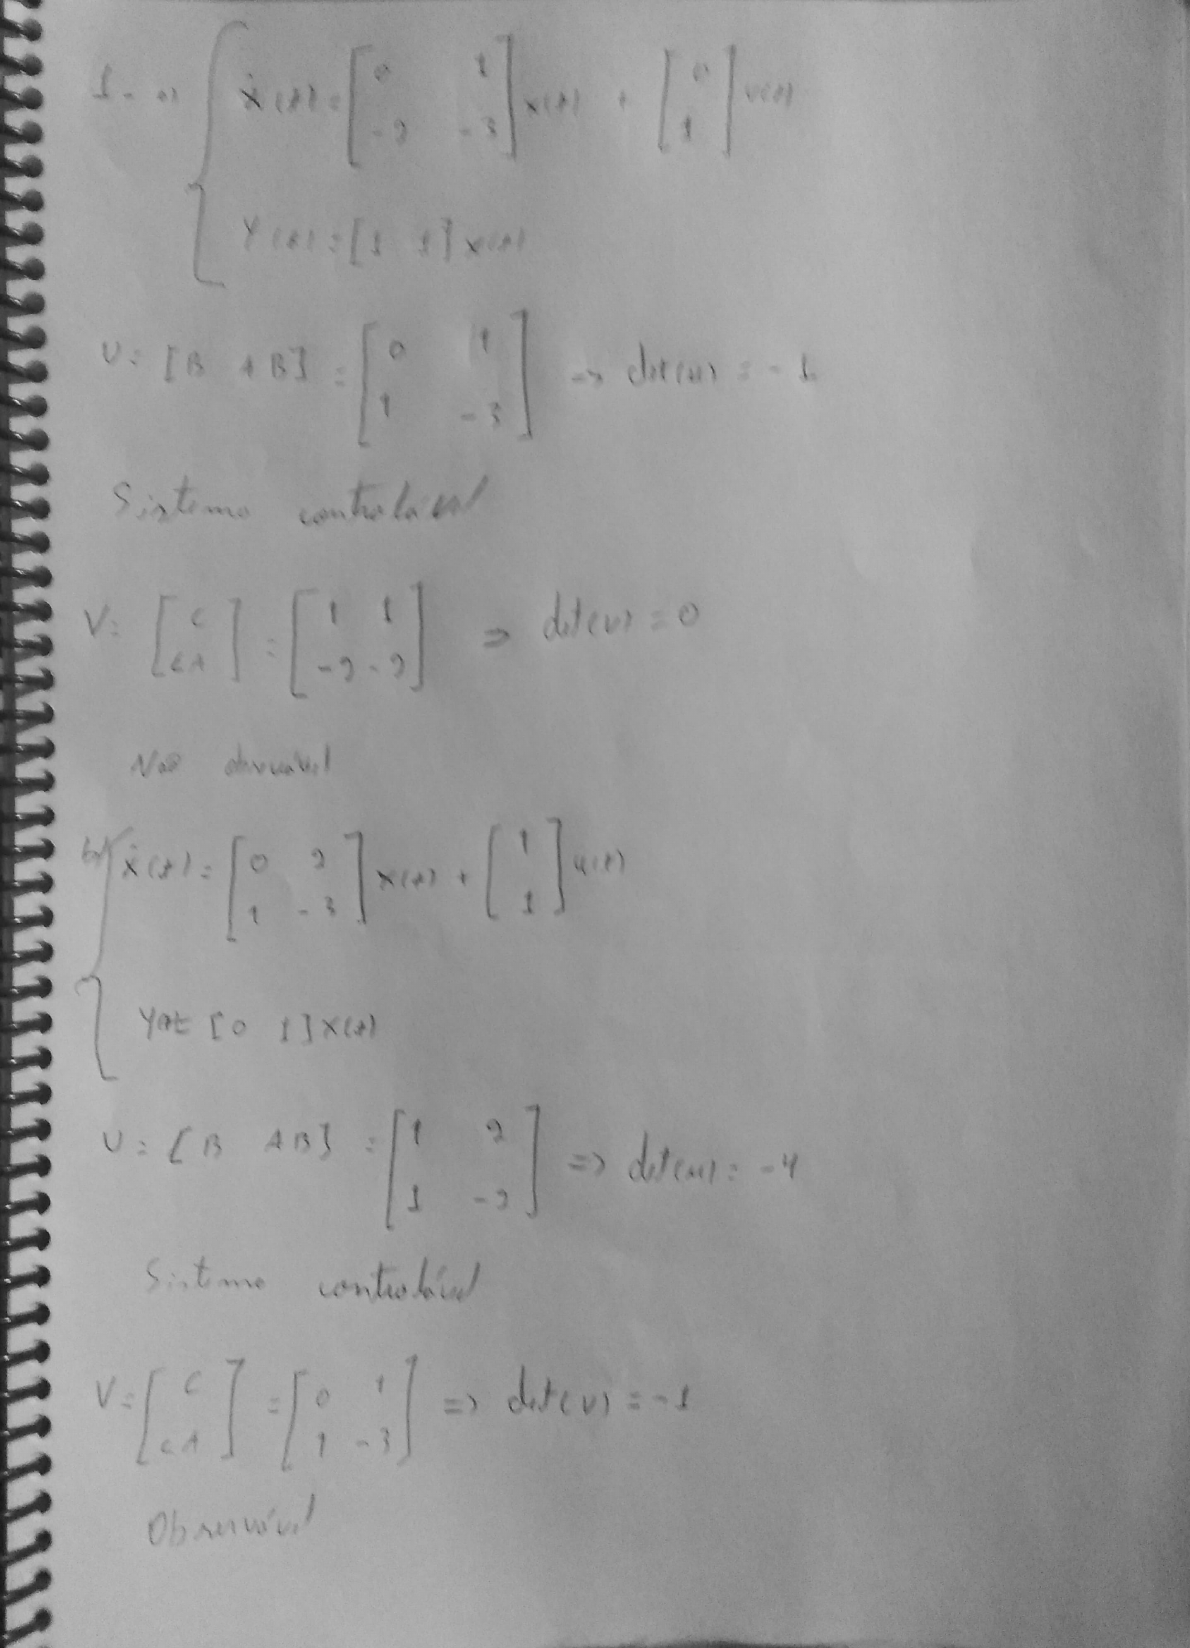 1- a) ẋ(t) = [0 1; -2 -3] x(t) + [0; 1] u(t)
y(t) = [1 1] x(t)
U = [B AB] = [0 1; 1 -3] => det(u) = -1
Sistema controlável
V = [C; CA] = [1 1; -2 -2] => det(v) = 0
Não observável
b) ẋ(t) = [0 2; 1 -3] x(t) + [1; 1] u(t)
y(t) = [0 1] x(t)
U = [B AB] = [1 2; 1 -2] => det(u) = -4
Sistema controlável
V = [C; CA] = [0 1; 1 -3] => det(v) = -1
Observável